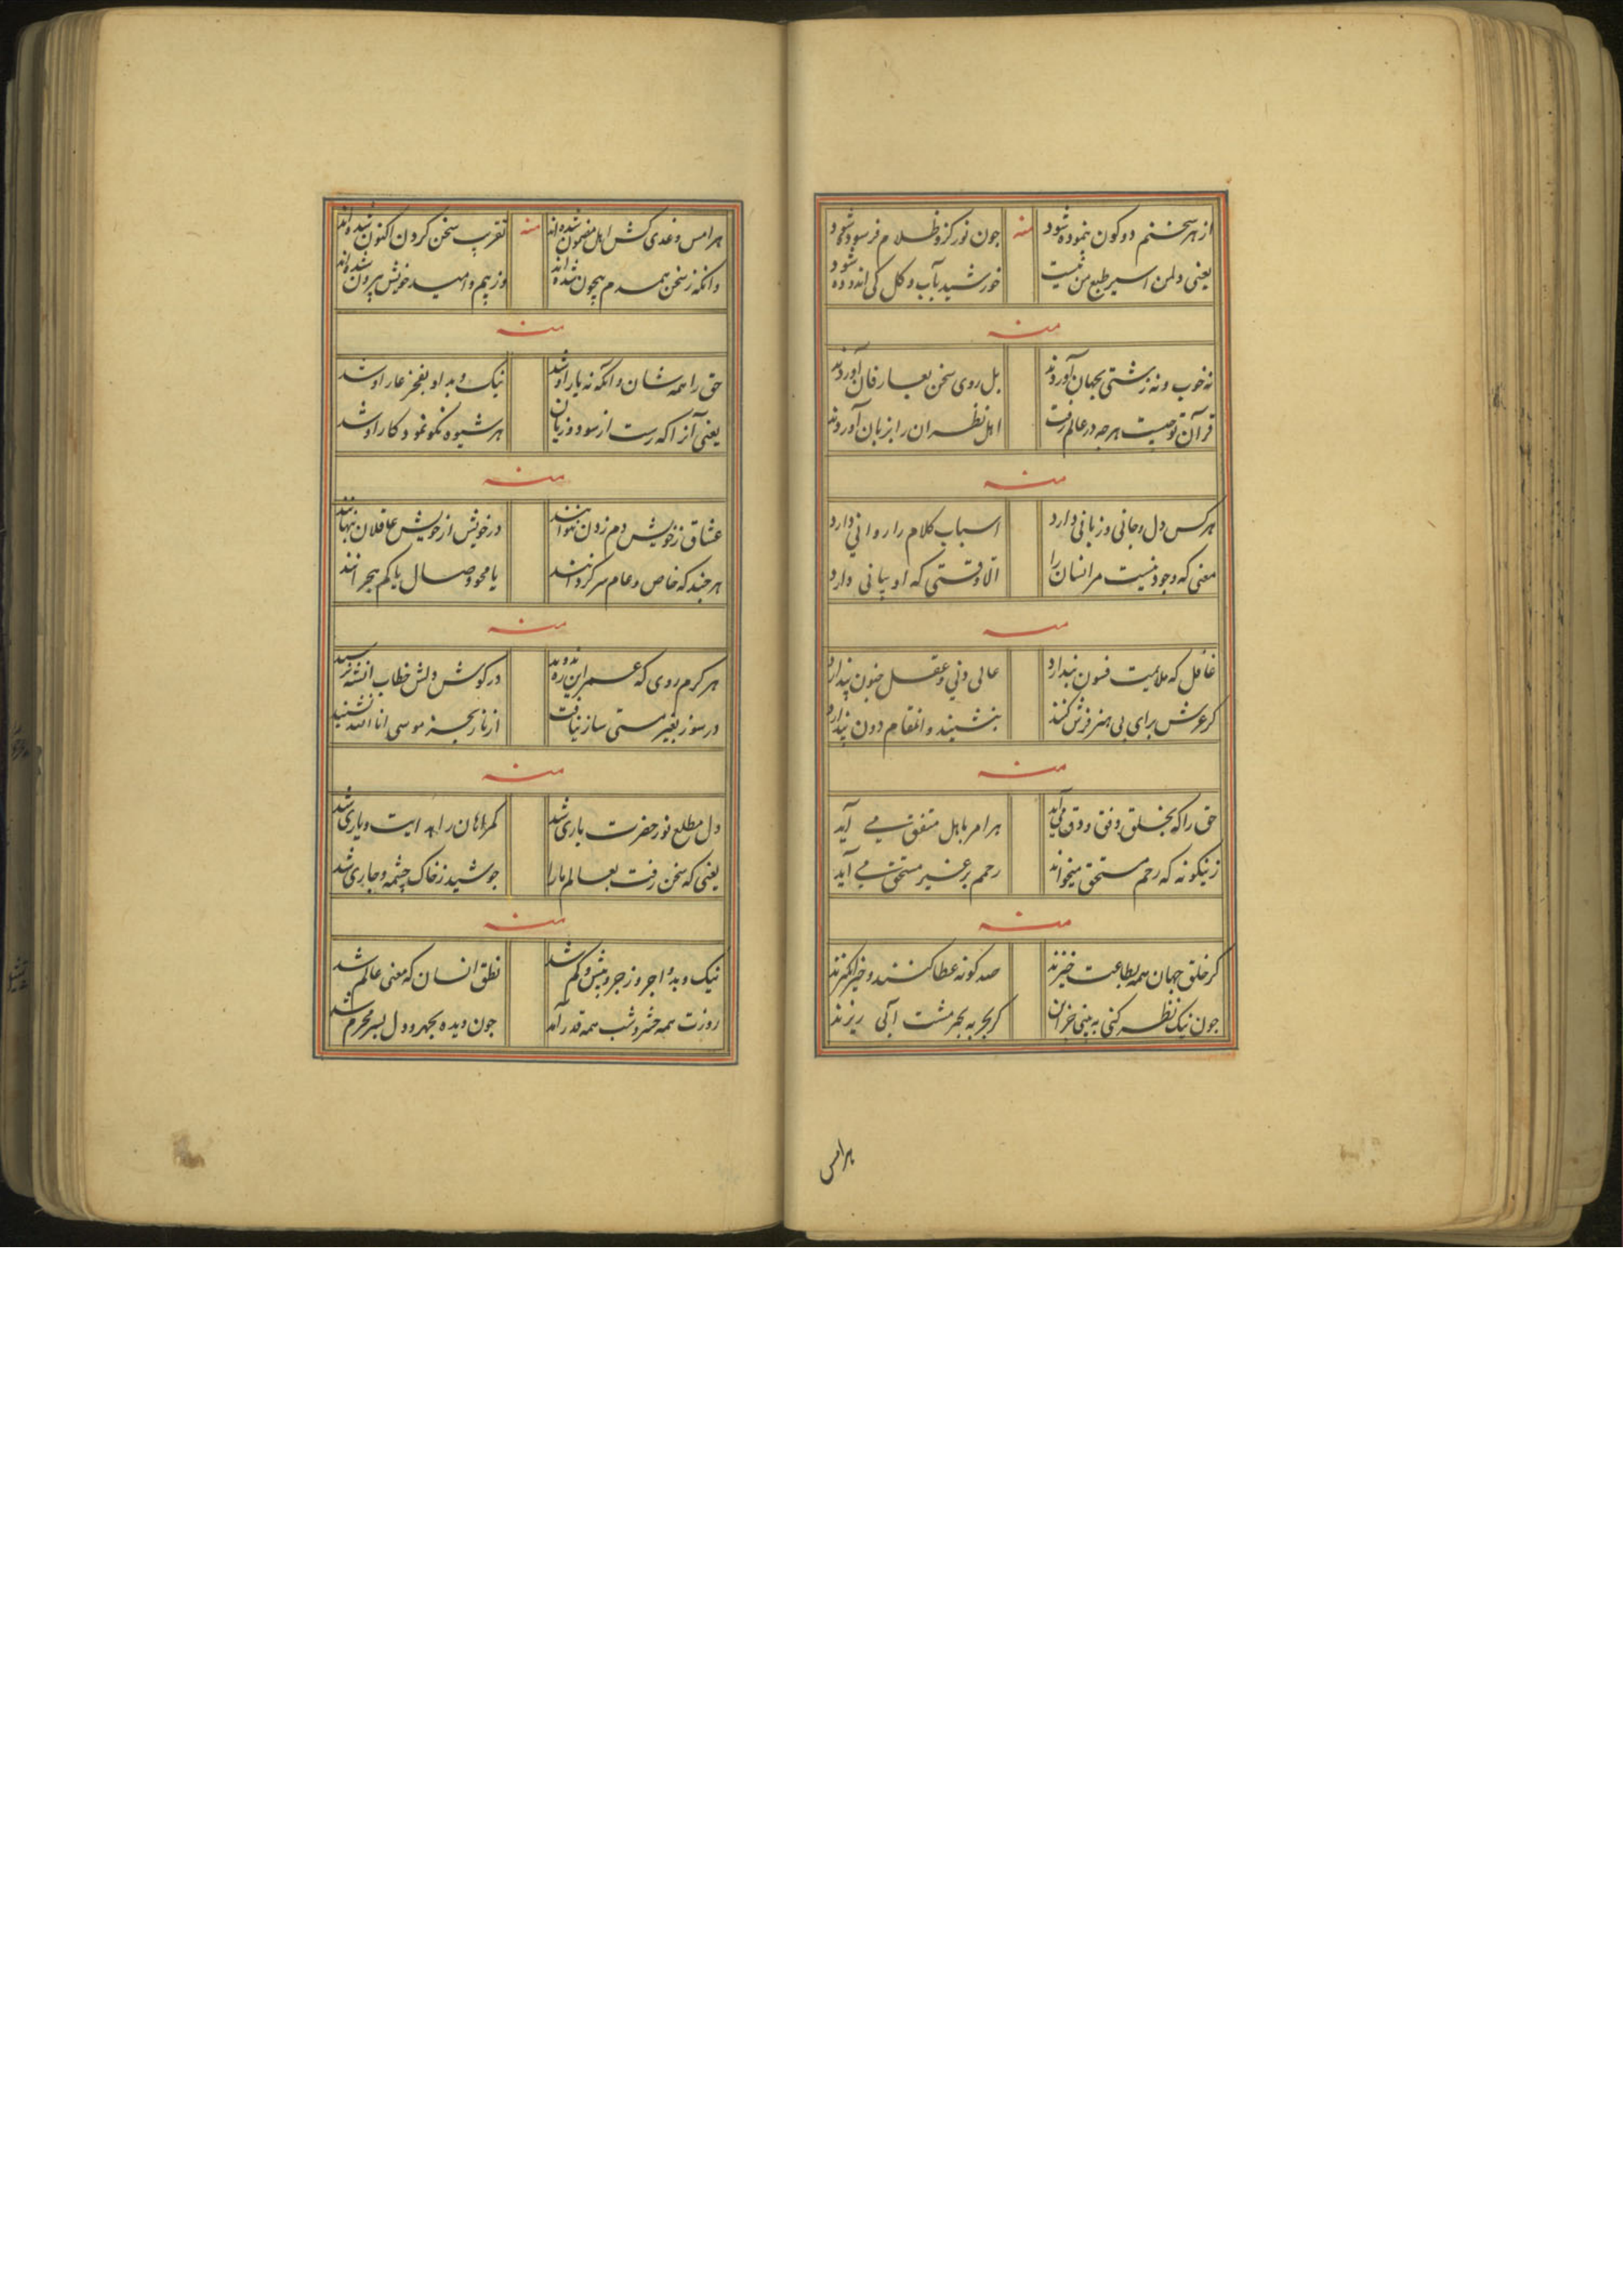 از هر سخنم دو کون بنموده شود منه جون نور کزو ظلام فرسوده شود
یعنی دلمن اسیر طبع من نیست خورشید بآب و کل کی اندوده شود
منه
نه خوب و نه زشتی بجهان آوردند بل روی سخن بعارفان آوردند
قرآن توحیست هرجه در عالم رفت اهل نظران را بزبان آوردند
منه
هر کس دل و جانی و زبانی دارد اسباب کلام را روانی دارد
معنی که وجود نیست مر انسان را الا وقتی که او بیانی دارد
منه
غافل که ملائمیت فسون پندارد عالی دنی و عقل جنون پندارد
کر عرش برای بی هنر فرش کنند بنشیند و انمقام دون پندارد
منه
حق را که بخلق وفق و دق می آید هر امر باهل متفق می آید
زینکونه که رحم مستحق میخواند رحمم بر غیر مستحق می آید
منه
کر خلق جهان همه بطاعت خیزند صد کونه عطا کنند و خیر انکیزند
جون نیک نظر کنی به بینی خزان کز بحر به بحر مشت آبی ریزند
هر امس
هر امس و غدی کش اهل مضمون شده اند منه تقریب سخن کردن اکنون شده اند
وانکه ز سخن همدم بیچون شده اند وز بیم و امید خویش بیرون شده اند
منه
حق را همه شان و انکه نه یار او شد نیک و بد او بفخر عار او شد
یعنی آنرا که رست از سود و زیان هر شیوه نکو نمود کار او شد
منه
عشاق ز خویش دم زدن نتوانند در خویش از خویش عاقلان پنهانند
هر جند که خاص و عام سرکردانند یا محو وصال یا کم هجرانند
منه
هر کرم روی که عمر این ره ندوید در کوش دلش خطاب انشه نرسید
در سوز بغیر مستی ساز نیافت از نار بجز موسی انا الله نشنید
منه
دل مطلع نور حضرت باری شد کمراهان را هدایت و یاری شد
یعنی که سخن رفت بعالم مارا جوشید ز خاک چشمه و جاری شد
منه
نیک و بد و اجر و زجر و بیش و کم شد نطق انسان که معنی عالم شد
روزت همه حشر و شب همه قدر آمد جون دیده بجهر و دل بسر محرم شد